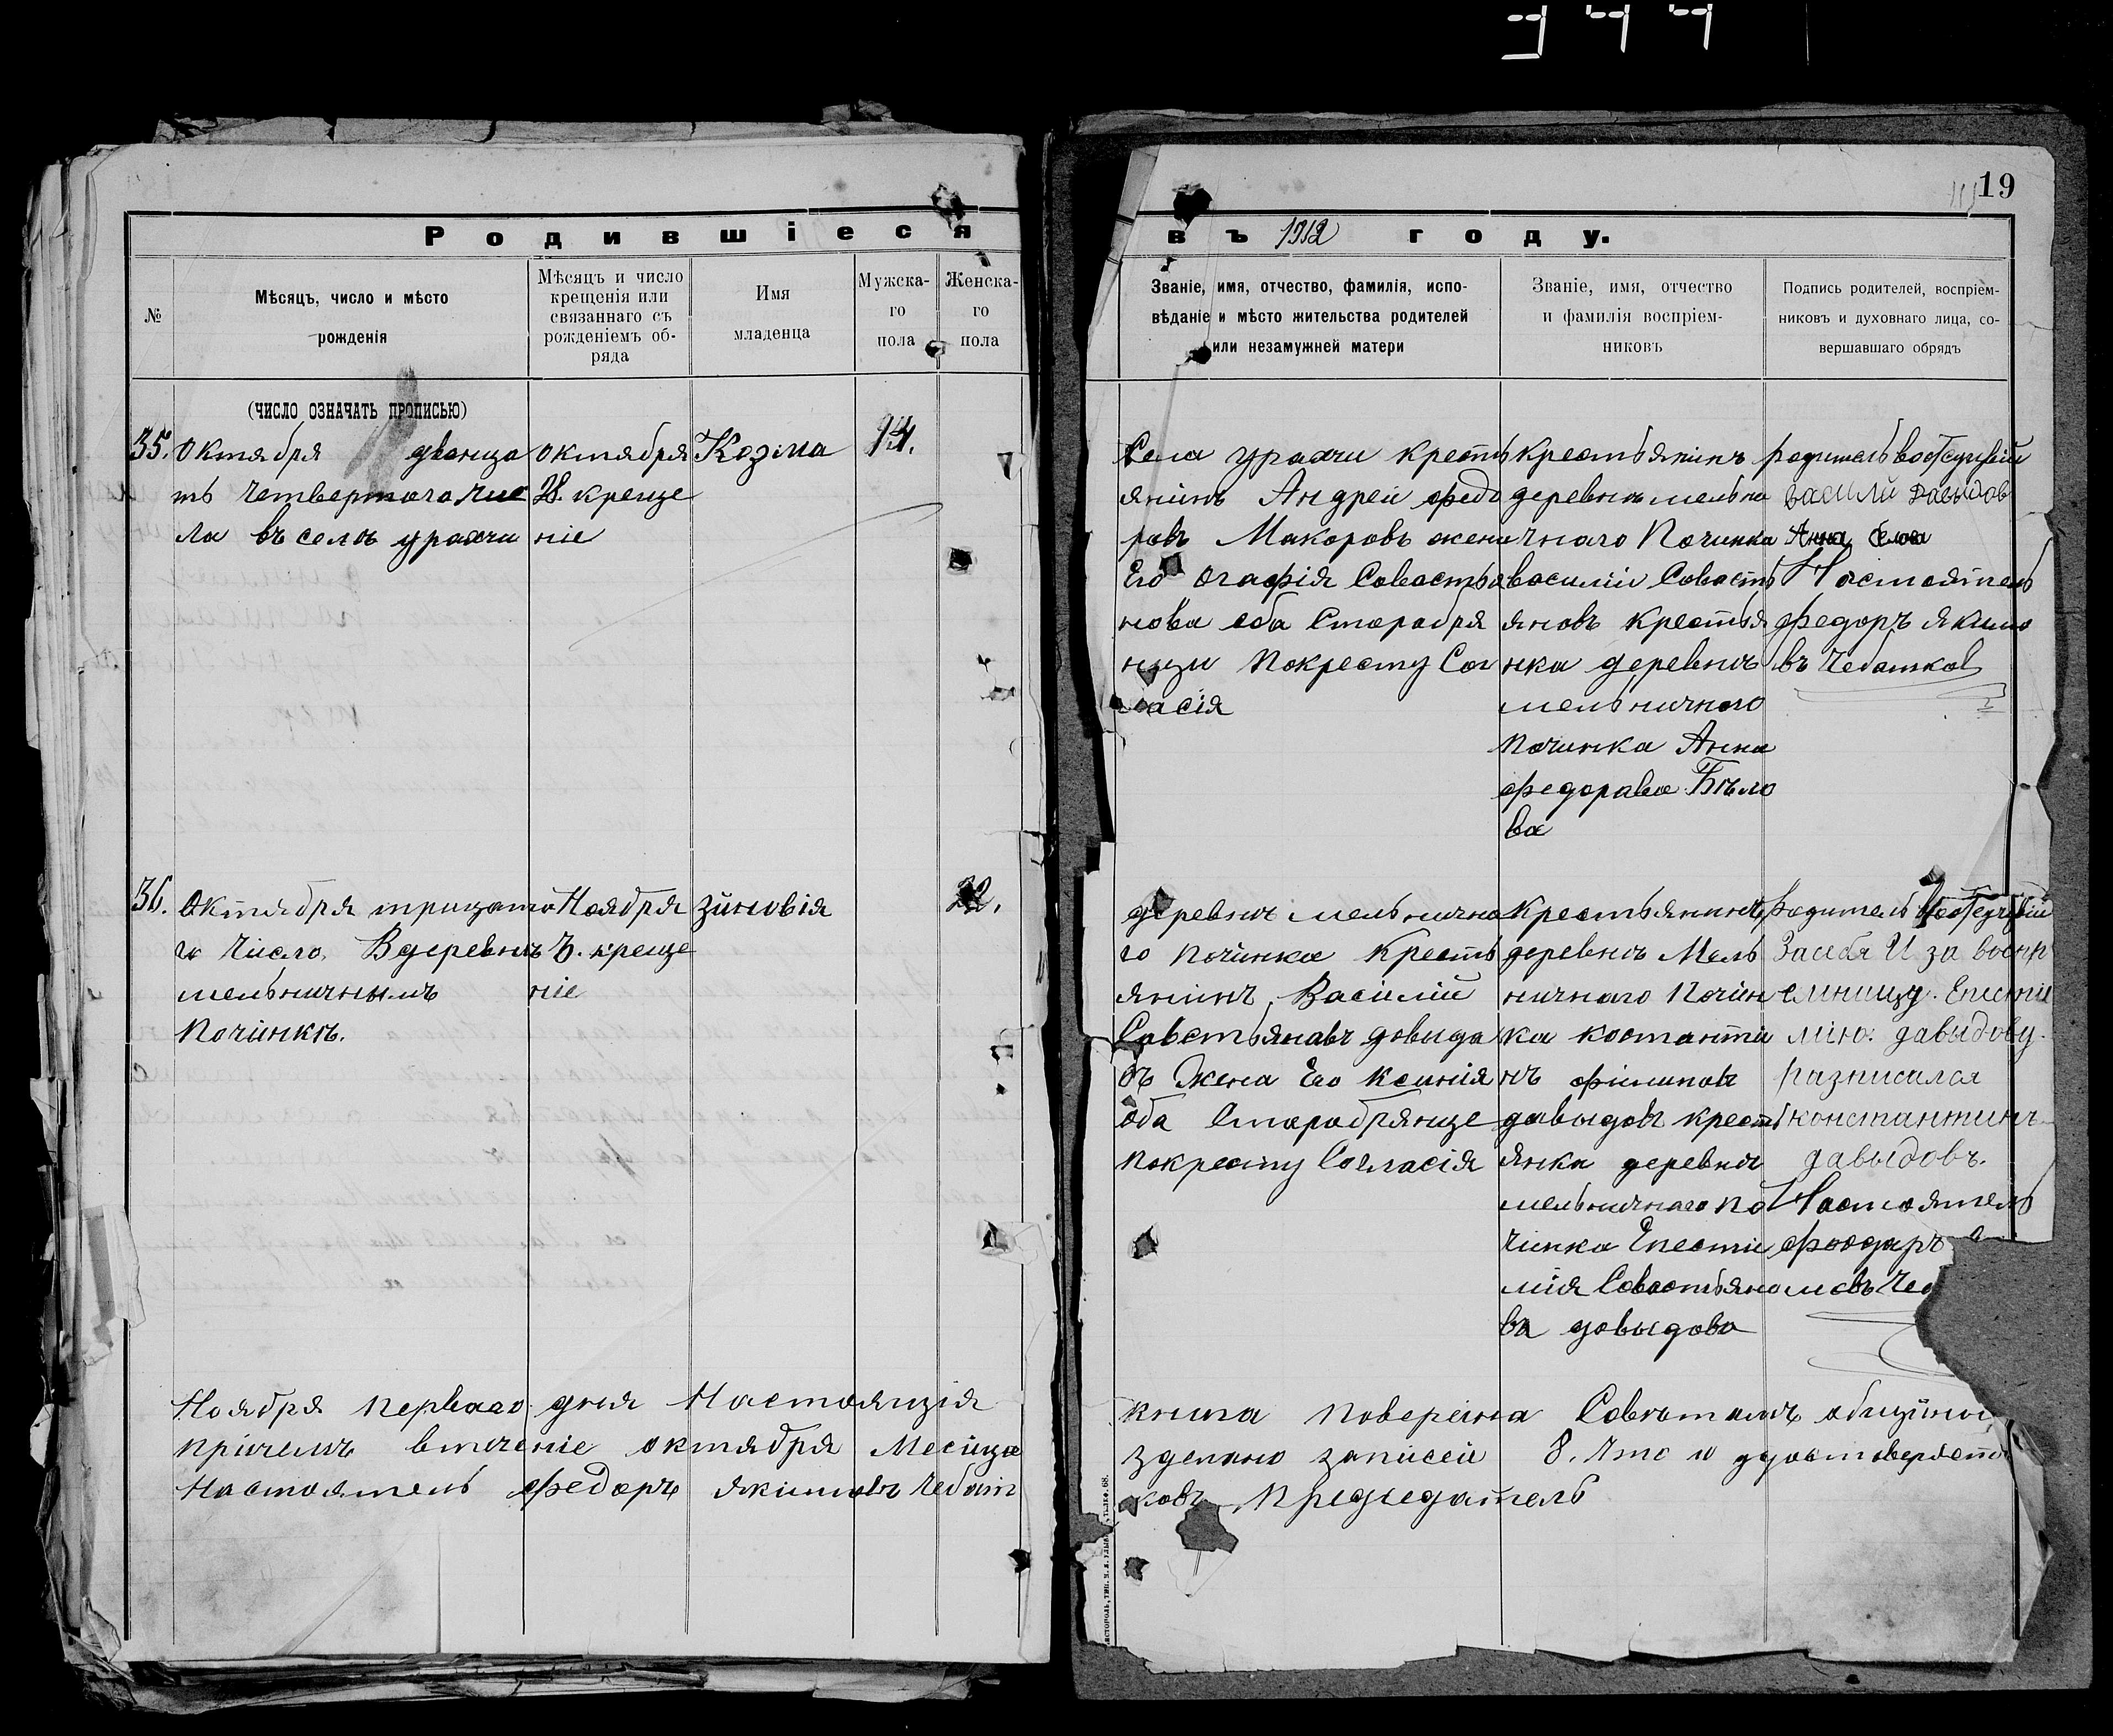 19
Родившіеся
въ 1912 году.
№
Мѣсяцъ, число и мѣсто
рожденія
Мѣсяцъ и число
крещенія или
связаннаго съ
рожденіемъ об-
ряда
Имя
младенца
Мужска-
го
пола
Женска-
го
пола
Званіе, имя, отчество, фамилія, испо-
вѣданіе и мѣсто жительства родителей
или незамужней матери
Званіе, имя, отчество
и фамилія воспріем-
никовъ
Подпись родителей, воспріем-
никовъ и духовнаго лица, со-
вершавшаго обрядъ
(число означать прописью)
35.
октября дванца
ть четвертого чис
ла въ селѣ урахчи
октября
28. креще
ніе
Козма
14.
Села урахчи кресть
янинъ Андрей федо
ровъ Макоровъ жена
Его огафія Совостья
нова оба Старобря
нцы покресту Сог
ласія
крестьянинъ
деревни мельни
чнаго Починка
василіи Совость
яновъ крестья
нка деревни
мельничного
починка Анна
федорава Бѣло
ва
родитель
василй давыдов
Анна
Настоятель
федоръ якимо
въ Чебатков
36.
Октября трицато
го число. В деревнѣ
мельничнымъ
Починкѣ.
Ноября
5. креще
ніе
зиновія
22.
деревни мельнична
го починка кресть
янинъ Василій
Совстьянавъ довыдо
въ Жена Его ксинія
оба Старобрянце
покресту Согласія
крестьянинъ
деревни Мель
ничнаго почин
ка костанти
нъ филипов
давыдовъ кресть
янка деревни
мельничнаго по
чинка Епести
мія Совостьяно
ва довыдова
родитель
За себя И за воспр
емницу. Епести
мію. давыдову.
разписался
константинъ
давыдовъ.
Настоятель
фодаръ
мовъ Че
Ноября перваго дня Настоящія
причемъ втечение октября Месяца
Настоятель федоръ якимовъ Чебат
книга поверена Советомъ общины
зделано записей 8. Что и удостоверяет
ковъ Председатель